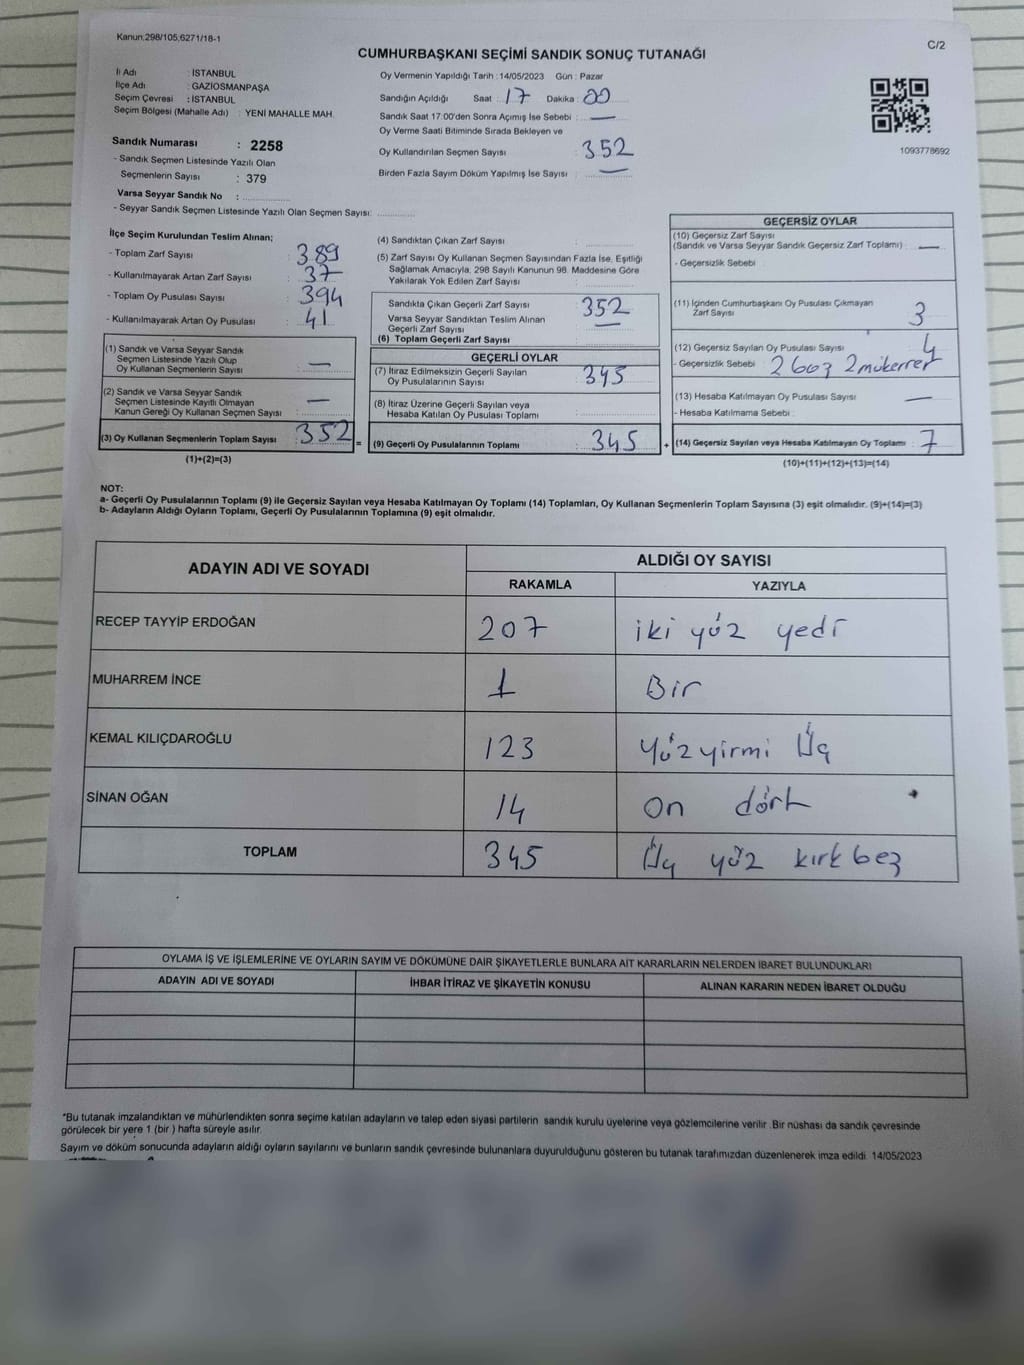 Kanun:298/105,6271/18-1
C/2
CUMHURBAŞKANI SEÇİMİ SANDIK SONUÇ TUTANAĞI
İl Adı : İSTANBUL
İlçe Adı : GAZİOSMANPAŞA
Seçim Çevresi : İSTANBUL
Seçim Bölgesi (Mahalle Adı) : YENİ MAHALLE MAH.
Sandık Numarası : 2258
- Sandık Seçmen Listesinde Yazılı Olan
Seçmenlerin Sayısı : 379
Varsa Seyyar Sandık No :
- Seyyar Sandık Seçmen Listesinde Yazılı Olan Seçmen Sayısı:
Oy Vermenin Yapıldığı Tarih : 14/05/2023 Gün : Pazar
Sandığın Açıldığı Saat : 17 Dakika : 00
Sandık Saat 17.00'den Sonra Açımış İse Sebebi : —
Oy Verme Saati Bitiminde Sırada Bekleyen ve
Oy Kullandırılan Seçmen Sayısı : 352
Birden Fazla Sayım Döküm Yapılmış İse Sayısı : —
1093778692
İlçe Seçim Kurulundan Teslim Alınan;
- Toplam Zarf Sayısı : 389
- Kullanılmayarak Artan Zarf Sayısı : 37
- Toplam Oy Pusulası Sayısı : 394
- Kullanılmayarak Artan Oy Pusulası : 41
(1) Sandık ve Varsa Seyyar Sandık
Seçmen Listesinde Yazılı Olup
Oy Kullanan Seçmenlerin Sayısı : —
(2) Sandık ve Varsa Seyyar Sandık
Seçmen Listesinde Kayıtlı Olmayan
Kanun Gereği Oy Kullanan Seçmen Sayısı : —
(3) Oy Kullanan Seçmenlerin Toplam Sayısı : 352 =
(1)+(2)=(3)
(4) Sandıktan Çıkan Zarf Sayısı :
(5) Zarf Sayısı Oy Kullanan Seçmen Sayısından Fazla İse, Eşitliği
Sağlamak Amacıyla, 298 Sayılı Kanunun 98. Maddesine Göre
Yakılarak Yok Edilen Zarf Sayısı :
Sandıkta Çıkan Geçerli Zarf Sayısı : 352
Varsa Seyyar Sandıktan Teslim Alınan
Geçerli Zarf Sayısı : —
(6) Toplam Geçerli Zarf Sayısı :
GEÇERLİ OYLAR
(7) İtiraz Edilmeksizin Geçerli Sayılan
Oy Pusulalarının Sayısı : 345
(8) İtiraz Üzerine Geçerli Sayılan veya
Hesaba Katılan Oy Pusulası Toplamı :
(9) Geçerli Oy Pusulalarının Toplamı : 345 +
GEÇERSİZ OYLAR
(10) Geçersiz Zarf Sayısı
(Sandık ve Varsa Seyyar Sandık Geçersiz Zarf Toplamı) : —
- Geçersizlik Sebebi :
(11) İçinden Cumhurbaşkanı Oy Pusulası Çıkmayan
Zarf Sayısı : 3
(12) Geçersiz Sayılan Oy Pusulası Sayısı : 4
- Geçersizlik Sebebi : 2 boş 2 mükerrer
(13) Hesaba Katılmayan Oy Pusulası Sayısı : —
- Hesaba Katılmama Sebebi :
(14) Geçersiz Sayılan veya Hesaba Katılmayan Oy Toplamı : 7
(10)+(11)+(12)+(13)=(14)
NOT:
a- Geçerli Oy Pusulalarının Toplamı (9) ile Geçersiz Sayılan veya Hesaba Katılmayan Oy Toplamı (14) Toplamları, Oy Kullanan Seçmenlerin Toplam Sayısına (3) eşit olmalıdır. (9)+(14)=(3)
b- Adayların Aldığı Oyların Toplamı, Geçerli Oy Pusulalarının Toplamına (9) eşit olmalıdır.
ADAYIN ADI VE SOYADI
ALDIĞI OY SAYISI
RAKAMLA YAZIYLA
RECEP TAYYİP ERDOĞAN 207 iki yüz yedi
MUHARREM İNCE 1 Bir
KEMAL KILIÇDAROĞLU 123 Yüz yirmi Üç
SİNAN OĞAN 14 on dört
TOPLAM 345 Üç yüz kırk beş
OYLAMA İŞ VE İŞLEMLERİNE VE OYLARIN SAYIM VE DÖKÜMÜNE DAİR ŞİKAYETLERLE BUNLARA AİT KARARLARIN NELERDEN İBARET BULUNDUKLARI
ADAYIN ADI VE SOYADI İHBAR İTİRAZ VE ŞİKAYETİN KONUSU ALINAN KARARIN NEDEN İBARET OLDUĞU
*Bu tutanak imzalandıktan ve mühürlendikten sonra seçime katılan adayların ve talep eden siyasi partilerin sandık kurulu üyelerine veya gözlemcilerine verilir .Bir nüshası da sandık çevresinde
görülecek bir yere 1 (bir ) hafta süreyle asılır.
Sayım ve döküm sonucunda adayların aldığı oyların sayılarını ve bunların sandık çevresinde bulunanlara duyurulduğunu gösteren bu tutanak tarafımızdan düzenlenerek imza edildi. 14/05/2023